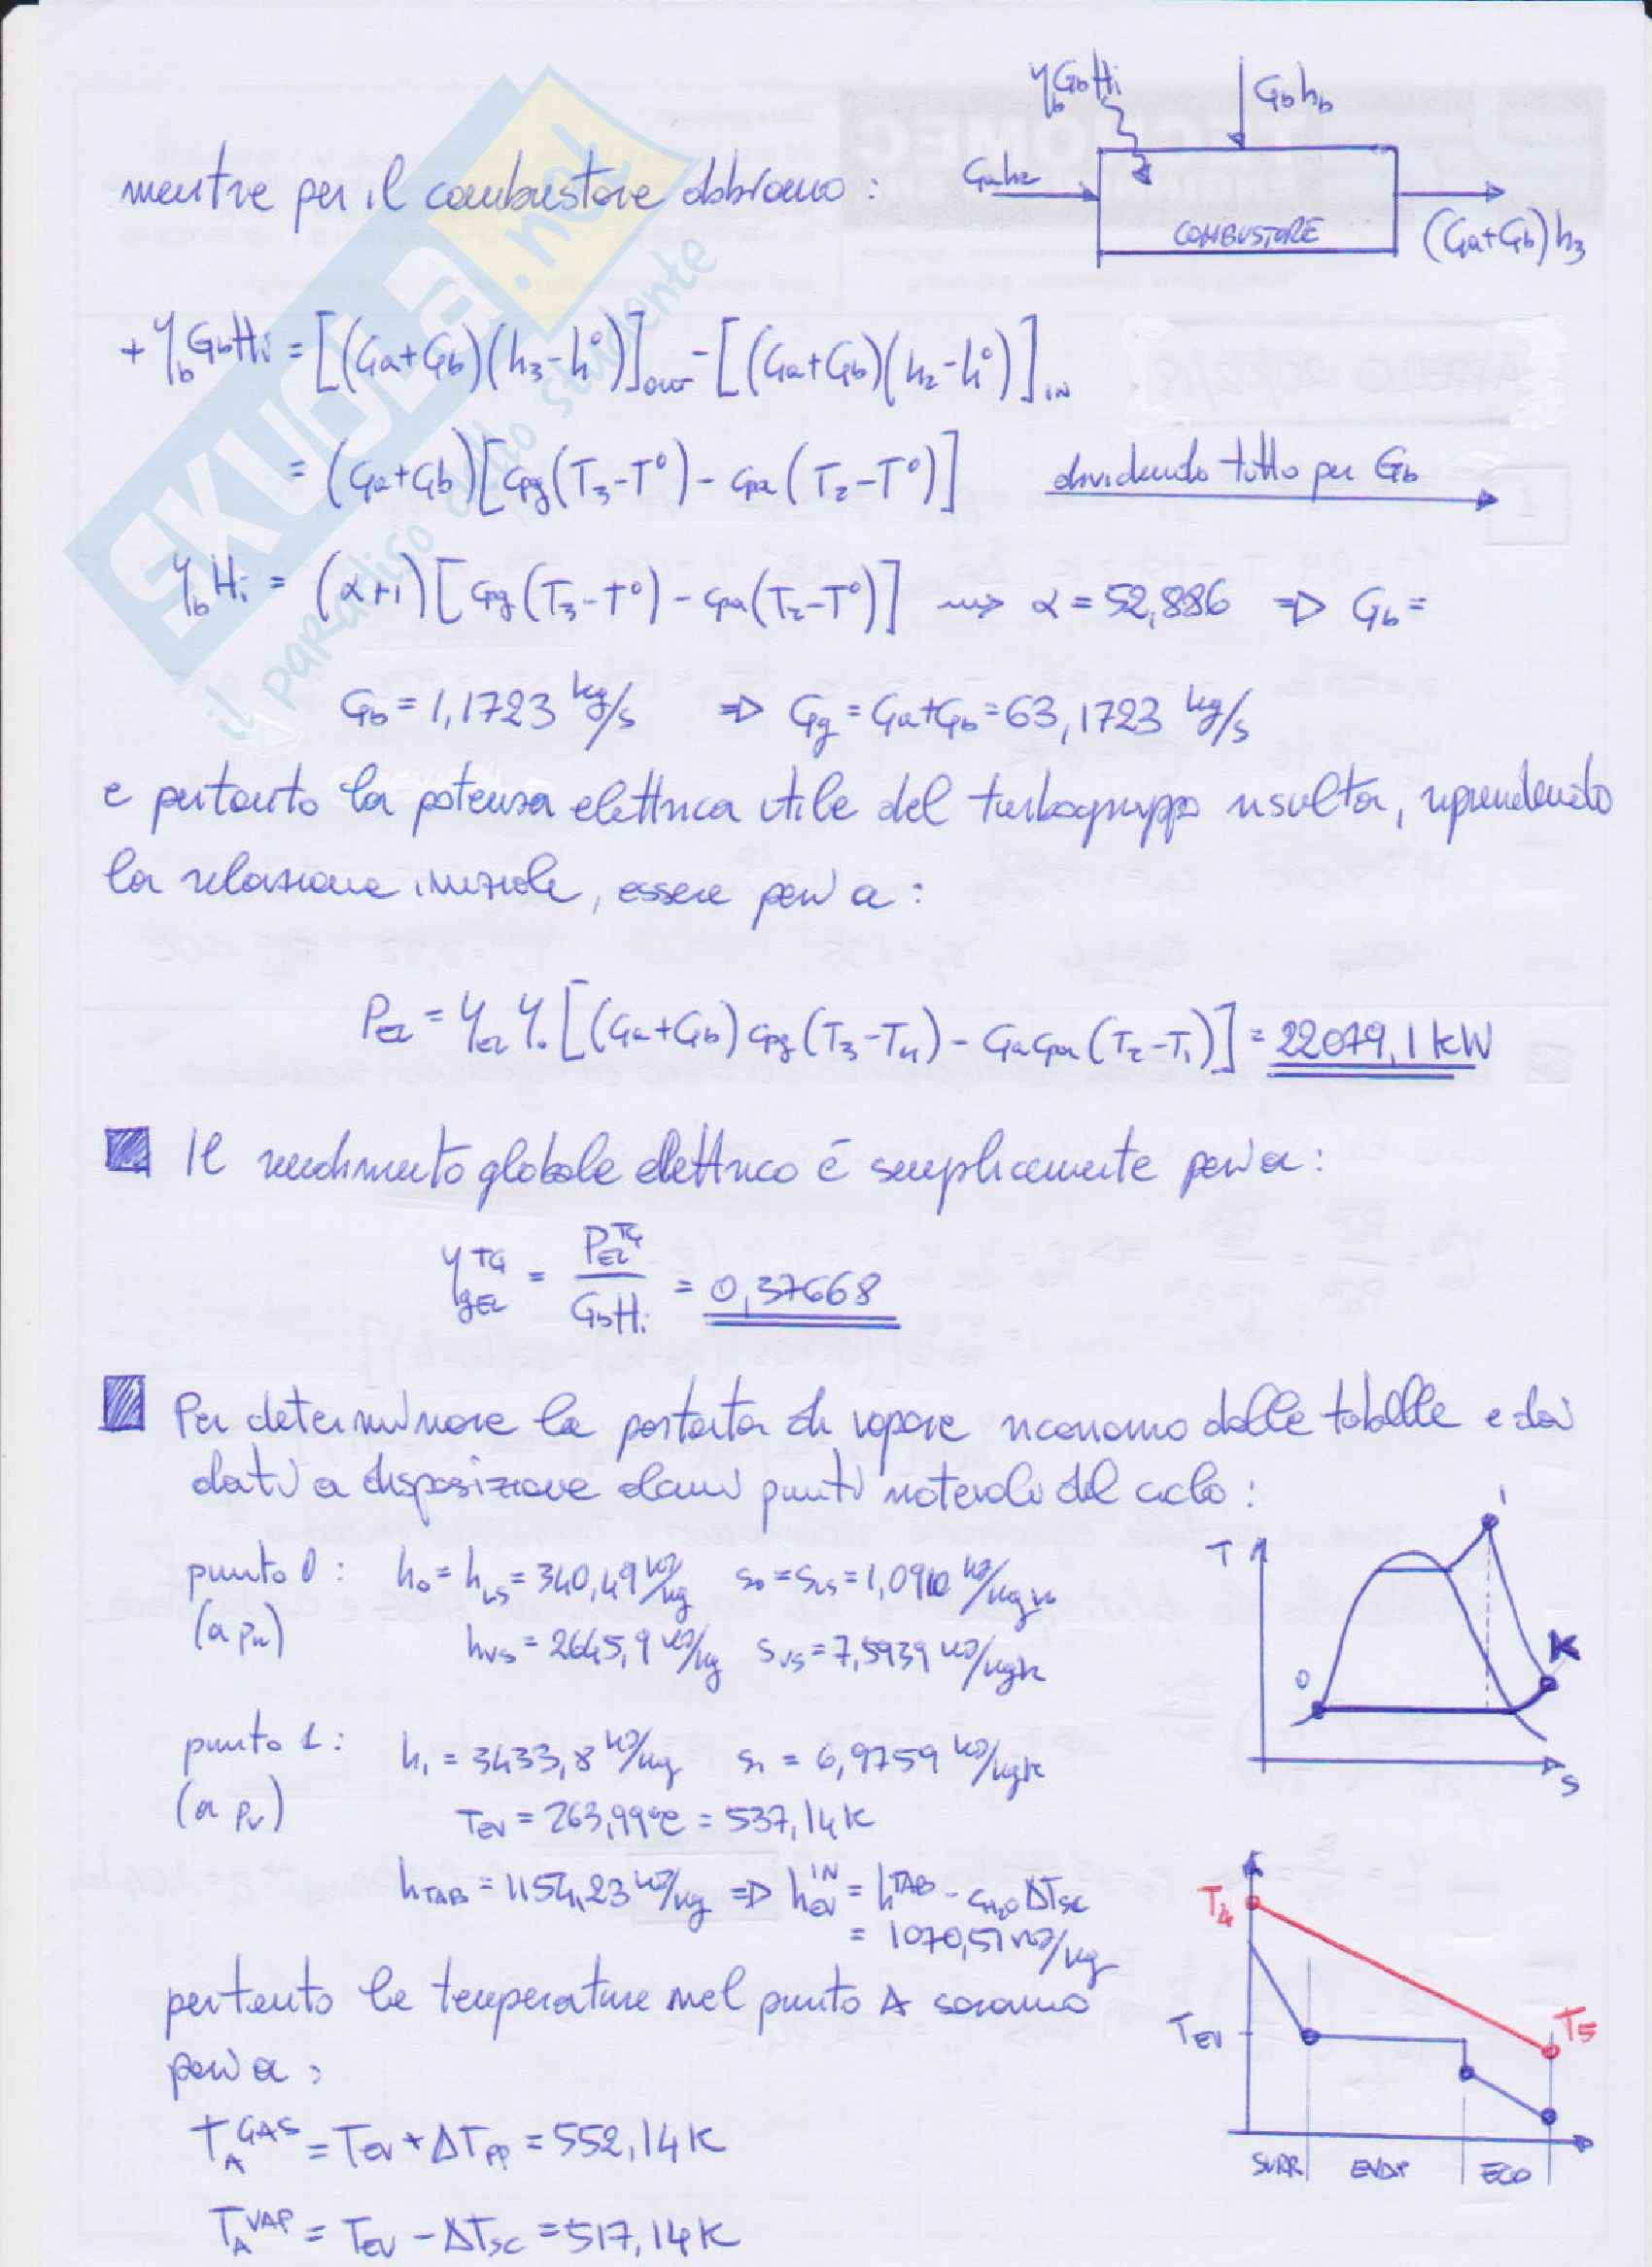 η_b G_b H_i
G_b h_b
mentre per il combustore abbiamo :
G_a h_2
COMBUSTORE
(G_a+G_b) h_3
+ η_b G_b H_i = [(G_a+G_b)(h_3-h°)]_OUT - [(G_a+G_b)(h_2-h°)]_IN
= (G_a+G_b)[c_pg(T_3-T°) - c_pa(T_2-T°)] dividendo tutto per G_b
η_b H_i = (α+1)[c_pg(T_3-T°) - c_pa(T_2-T°)] ⇝ α = 52,886 ⇒ G_b =
G_b = 1,1723 kg/s ⇒ G_g = G_a+G_b = 63,1723 kg/s
e pertanto la potenza elettrica utile del turbogruppo risulta, riprendendo
la relazione iniziale, essere pari a :
P_EL = η_EL η_o [(G_a+G_b) c_pg (T_3-T_4) - G_a c_pa (T_2-T_1)] = 22079,1 kW
Il rendimento globale elettrico è semplicemente pari a :
η_gEL^TG = P_EL^TG / G_b H_i = 0,37668
Per determinare la portata di vapore ricaviamo dalle tabelle e dai
dati a disposizione alcuni punti notevoli del ciclo :
punto 0 : h_0 = h_LS = 340,49 kJ/kg s_0 = s_LS = 1,0910 kJ/kgK
(a p_k) h_VS = 2645,9 kJ/kg s_VS = 7,5939 kJ/kgK
punto 1 : h_1 = 3433,8 kJ/kg s_1 = 6,9759 kJ/kgK
(a p_v) T_EV = 263,99°C = 537,14 K
h_TAB = 1154,23 kJ/kg ⇒ h_EV^IN = h^TAB - c_H2O ΔT_SC
= 1070,51 kJ/kg
T
1
0
K
S
pertanto le temperature nel punto A saranno
pari a :
T_A^GAS = T_EV + ΔT_PP = 552,14 K
T_A^VAP = T_EV - ΔT_SC = 517,14 K
T_4
T_EV
T_5
SURR EVAP ECO
SKUOLA.net
il paradiso dello studente